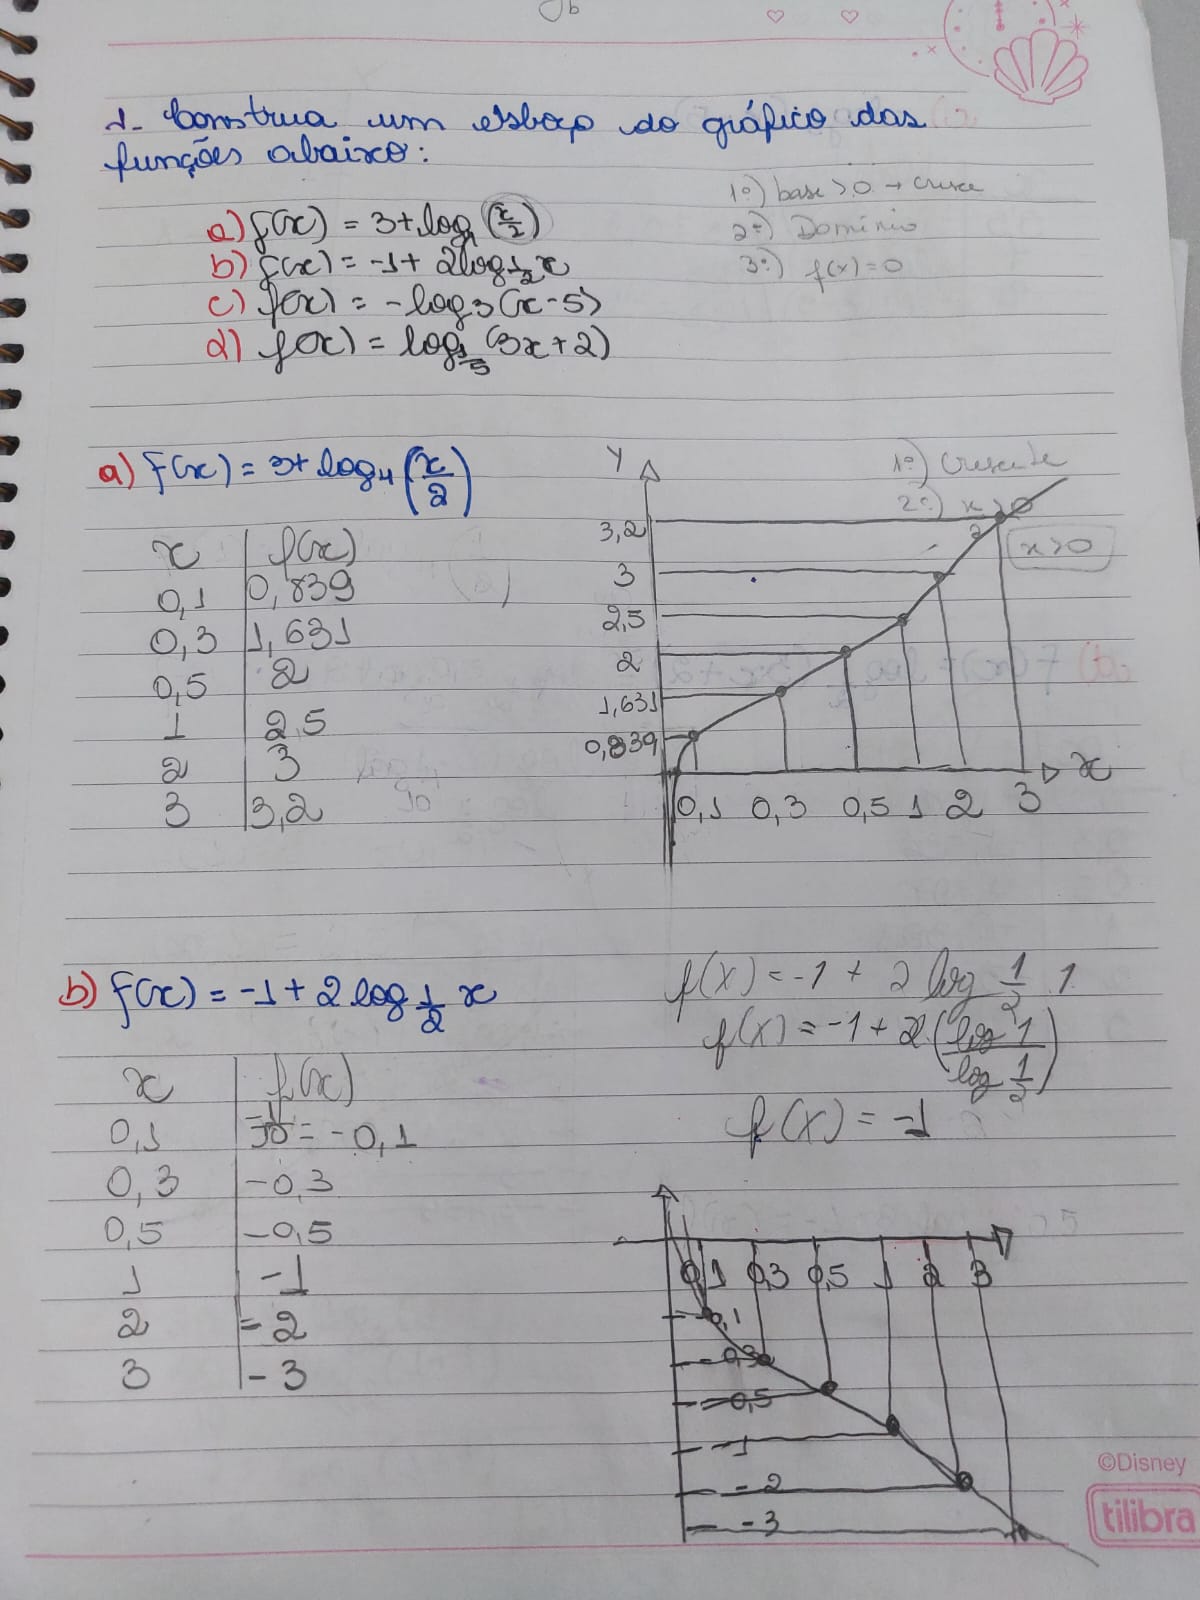 1- Construa um esboço do gráfico das
funções abaixo:
1º) base > 0 → cresce
2º) Domínio
3º) f(x) = 0
a) f(x) = 3 + log4 (x/2)
b) f(x) = -1 + 2log 1/2 x
c) f(x) = -log3 (x-5)
d) f(x) = log 1/3 (3x+2)
a) f(x) = 3 + log4 (x/2)
x | f(x)
0,1 | 0,839
0,3 | 1,631
0,5 | 2
1 | 2,5
2 | 3
3 | 3,2
1º) Crescente
2º) x/2 > 0
x>0
y
3,2
3
2,5
2
1,631
0,839
0,1 0,3 0,5 1 2 3 x
b) f(x) = -1 + 2 log 1/2 x
x | f(x)
0,1 | -1/10 = -0,1
0,3 | -0,3
0,5 | -0,5
1 | -1
2 | -2
3 | -3
f(x) = -1 + 2 log 1/2 1
f(x) = -1 + 2.(log 1/log 1/2)
f(x) = -1
0,1 0,3 0,5 1 2 3
-0,1
-0,3
-0,5
-1
-2
-3
©Disney
tilibra